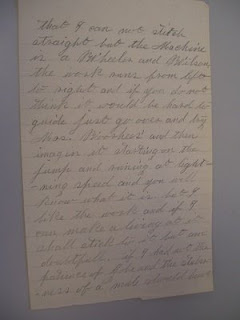 that I can not stitch
straight but the Machine
is a Wheeler and Wilson
the work runs from left
to right and if you do not
think it would be hard to
guide just go over and try
Mrs. Voorhies' and then
imagin it starting on the
jump and runing at light-
-ning speed and you will
know what it is but I
like the work and if I
can make a living at it
shall stick to it but am
doubtful. if I had not the
patience of Job and the
-ness of a mule should have